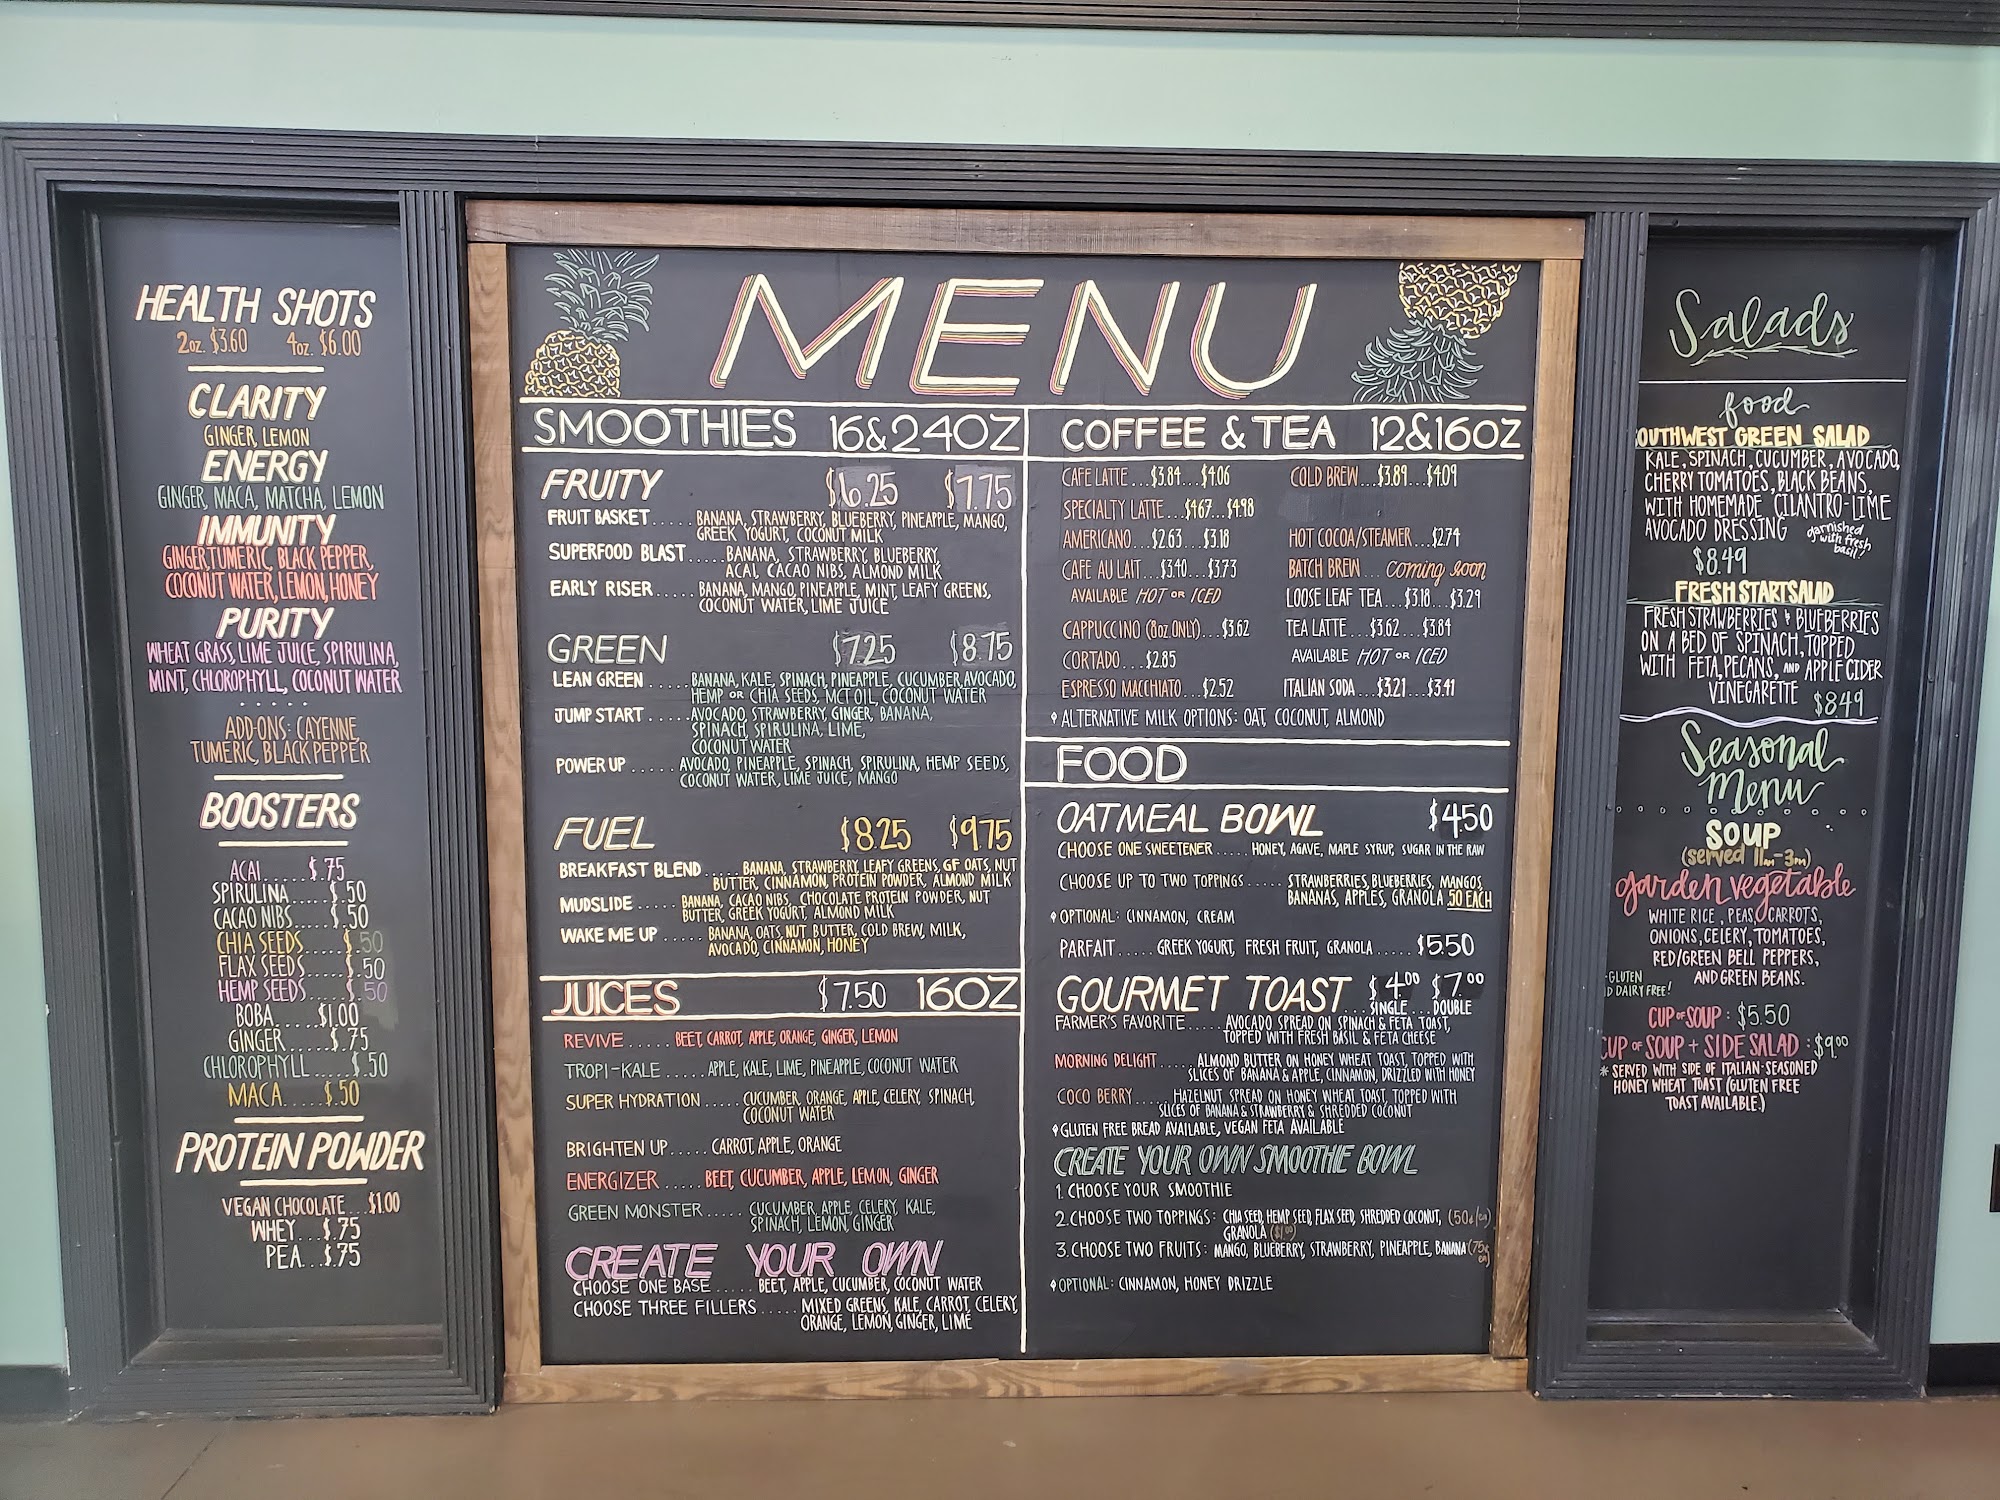 HEALTH SHOTS
2oz. $3.60 4oz. $6.00
CLARITY
GINGER, LEMON
ENERGY
GINGER, MACA, MATCHA, LEMON
IMMUNITY
GINGER, TUMERIC, BLACK PEPPER,
COCONUT WATER, LEMON, HONEY
PURITY
WHEAT GRASS, LIME JUICE, SPIRULINA,
MINT, CHLOROPHYLL, COCONUT WATER
.....
ADD-ONS: CAYENNE,
TUMERIC, BLACK PEPPER
BOOSTERS
ACAI.......$.75
SPIRULINA......$.50
CACAO NIBS.....$.50
CHIA SEEDS.....$.50
FLAX SEEDS.....$.50
HEMP SEEDS.....$.50
BOBA......$1.00
GINGER......$.75
CHLOROPHYLL.....$.50
MACA.....$.50
PROTEIN POWDER
VEGAN CHOCOLATE...$1.00
WHEY...$.75
PEA...$.75
MENU
SMOOTHIES 16&24OZ
FRUITY $6.25 $7.75
FRUIT BASKET...... BANANA, STRAWBERRY, BLUEBERRY, PINEAPPLE, MANGO,
GREEK YOGURT, COCONUT MILK
SUPERFOOD BLAST...... BANANA, STRAWBERRY, BLUEBERRY,
ACAI, CACAO NIBS, ALMOND MILK
EARLY RISER...... BANANA, MANGO, PINEAPPLE, MINT, LEAFY GREENS,
COCONUT WATER, LIME JUICE
GREEN $7.25 $8.75
LEAN GREEN ...... BANANA, KALE, SPINACH, PINEAPPLE, CUCUMBER, AVOCADO,
HEMP OR CHIA SEEDS, MCT OIL, COCONUT WATER
JUMP START ...... AVOCADO, STRAWBERRY, GINGER, BANANA,
SPINACH, SPIRULINA, LIME,
COCONUT WATER
POWER UP ...... AVOCADO, PINEAPPLE, SPINACH, SPIRULINA, HEMP SEEDS,
COCONUT WATER, LIME JUICE, MANGO
FUEL $8.25 $9.75
BREAKFAST BLEND ..... BANANA, STRAWBERRY, LEAFY GREENS, GF OATS, NUT
BUTTER, CINNAMON, PROTEIN POWDER, ALMOND MILK
MUDSLIDE ...... BANANA, CACAO NIBS, CHOCOLATE PROTEIN POWDER, NUT
BUTTER, GREEK YOGURT, ALMOND MILK
WAKE ME UP ...... BANANA, OATS, NUT BUTTER, COLD BREW, MILK,
AVOCADO, CINNAMON, HONEY
JUICES $7.50 16OZ
REVIVE ...... BEET, CARROT, APPLE, ORANGE, GINGER, LEMON
TROPI-KALE ...... APPLE, KALE, LIME, PINEAPPLE, COCONUT WATER
SUPER HYDRATION ..... CUCUMBER, ORANGE, APPLE, CELERY, SPINACH,
COCONUT WATER
BRIGHTEN UP ..... CARROT, APPLE, ORANGE
ENERGIZER ..... BEET, CUCUMBER, APPLE, LEMON, GINGER
GREEN MONSTER ..... CUCUMBER, APPLE, CELERY, KALE,
SPINACH, LEMON, GINGER
CREATE YOUR OWN
CHOOSE ONE BASE ..... BEET, APPLE, CUCUMBER, COCONUT WATER
CHOOSE THREE FILLERS ..... MIXED GREENS, KALE, CARROT, CELERY,
ORANGE, LEMON, GINGER, LIME
COFFEE & TEA 12&16OZ
CAFE LATTE...$3.84...$4.06 COLD BREW...$3.89...$4.09
SPECIALTY LATTE...$4.67...$4.98
AMERICANO...$2.63...$3.18 HOT COCOA/STEAMER...$2.74
CAFE AU LAIT...$3.40...$3.73 BATCH BREW... coming soon
AVAILABLE HOT OR ICED LOOSE LEAF TEA...$3.18...$3.29
CAPPUCCINO (8oz ONLY)...$3.62 TEA LATTE...$3.62...$3.84
CORTADO...$2.85 AVAILABLE HOT OR ICED
ESPRESSO MACCHIATO...$2.52 ITALIAN SODA...$3.21...$3.41
ALTERNATIVE MILK OPTIONS: OAT, COCONUT, ALMOND
FOOD
OATMEAL BOWL $4.50
CHOOSE ONE SWEETENER ..... HONEY, AGAVE, MAPLE SYRUP, SUGAR IN THE RAW
CHOOSE UP TO TWO TOPPINGS ..... STRAWBERRIES, BLUEBERRIES, MANGOS
BANANAS, APPLES, GRANOLA .50 EACH
OPTIONAL: CINNAMON, CREAM
PARFAIT ...... GREEK YOGURT, FRESH FRUIT, GRANOLA ..... $5.50
GOURMET TOAST $4.00 $7.00
SINGLE...DOUBLE
FARMER'S FAVORITE ..... AVOCADO SPREAD ON SPINACH & FETA TOAST,
TOPPED WITH FRESH BASIL & FETA CHEESE
MORNING DELIGHT ..... ALMOND BUTTER ON HONEY WHEAT TOAST, TOPPED WITH
SLICES OF BANANA & APPLE, CINNAMON, DRIZZLED WITH HONEY
COCO BERRY ..... HAZELNUT SPREAD ON HONEY WHEAT TOAST, TOPPED WITH
SLICES OF BANANA & STRAWBERRY & SHREDDED COCONUT
GLUTEN FREE BREAD AVAILABLE, VEGAN FETA AVAILABLE
CREATE YOUR OWN SMOOTHIE BOWL
1. CHOOSE YOUR SMOOTHIE
2. CHOOSE TWO TOPPINGS: CHIA SEED, HEMP SEED, FLAX SEED, SHREDDED COCONUT, (50¢/ea)
GRANOLA ($1.00)
3. CHOOSE TWO FRUITS: MANGO, BLUEBERRY, STRAWBERRY, PINEAPPLE, BANANA (75¢ ea)
OPTIONAL: CINNAMON, HONEY DRIZZLE
Salads
food
OUTHWEST GREEN SALAD
KALE, SPINACH, CUCUMBER, AVOCADO,
CHERRY TOMATOES, BLACK BEANS,
WITH HOMEMADE CILANTRO-LIME
AVOCADO DRESSING garnished with fresh basil!
$8.49
FRESH START SALAD
FRESH STRAWBERRIES & BLUEBERRIES
ON A BED OF SPINACH, TOPPED
WITH FETA, PECANS, AND APPLE CIDER
VINEGARETTE $8.49
Seasonal
Menu
SOUP
(served 11am-3pm)
garden vegetable
WHITE RICE, PEAS, CARROTS,
ONIONS, CELERY, TOMATOES,
RED/GREEN BELL PEPPERS,
AND GREEN BEANS.
-GLUTEN
D DAIRY FREE!
CUP OF SOUP: $5.50
CUP OF SOUP + SIDE SALAD: $9.00
* SERVED WITH SIDE OF ITALIAN-SEASONED
HONEY WHEAT TOAST (GLUTEN FREE
TOAST AVAILABLE.)